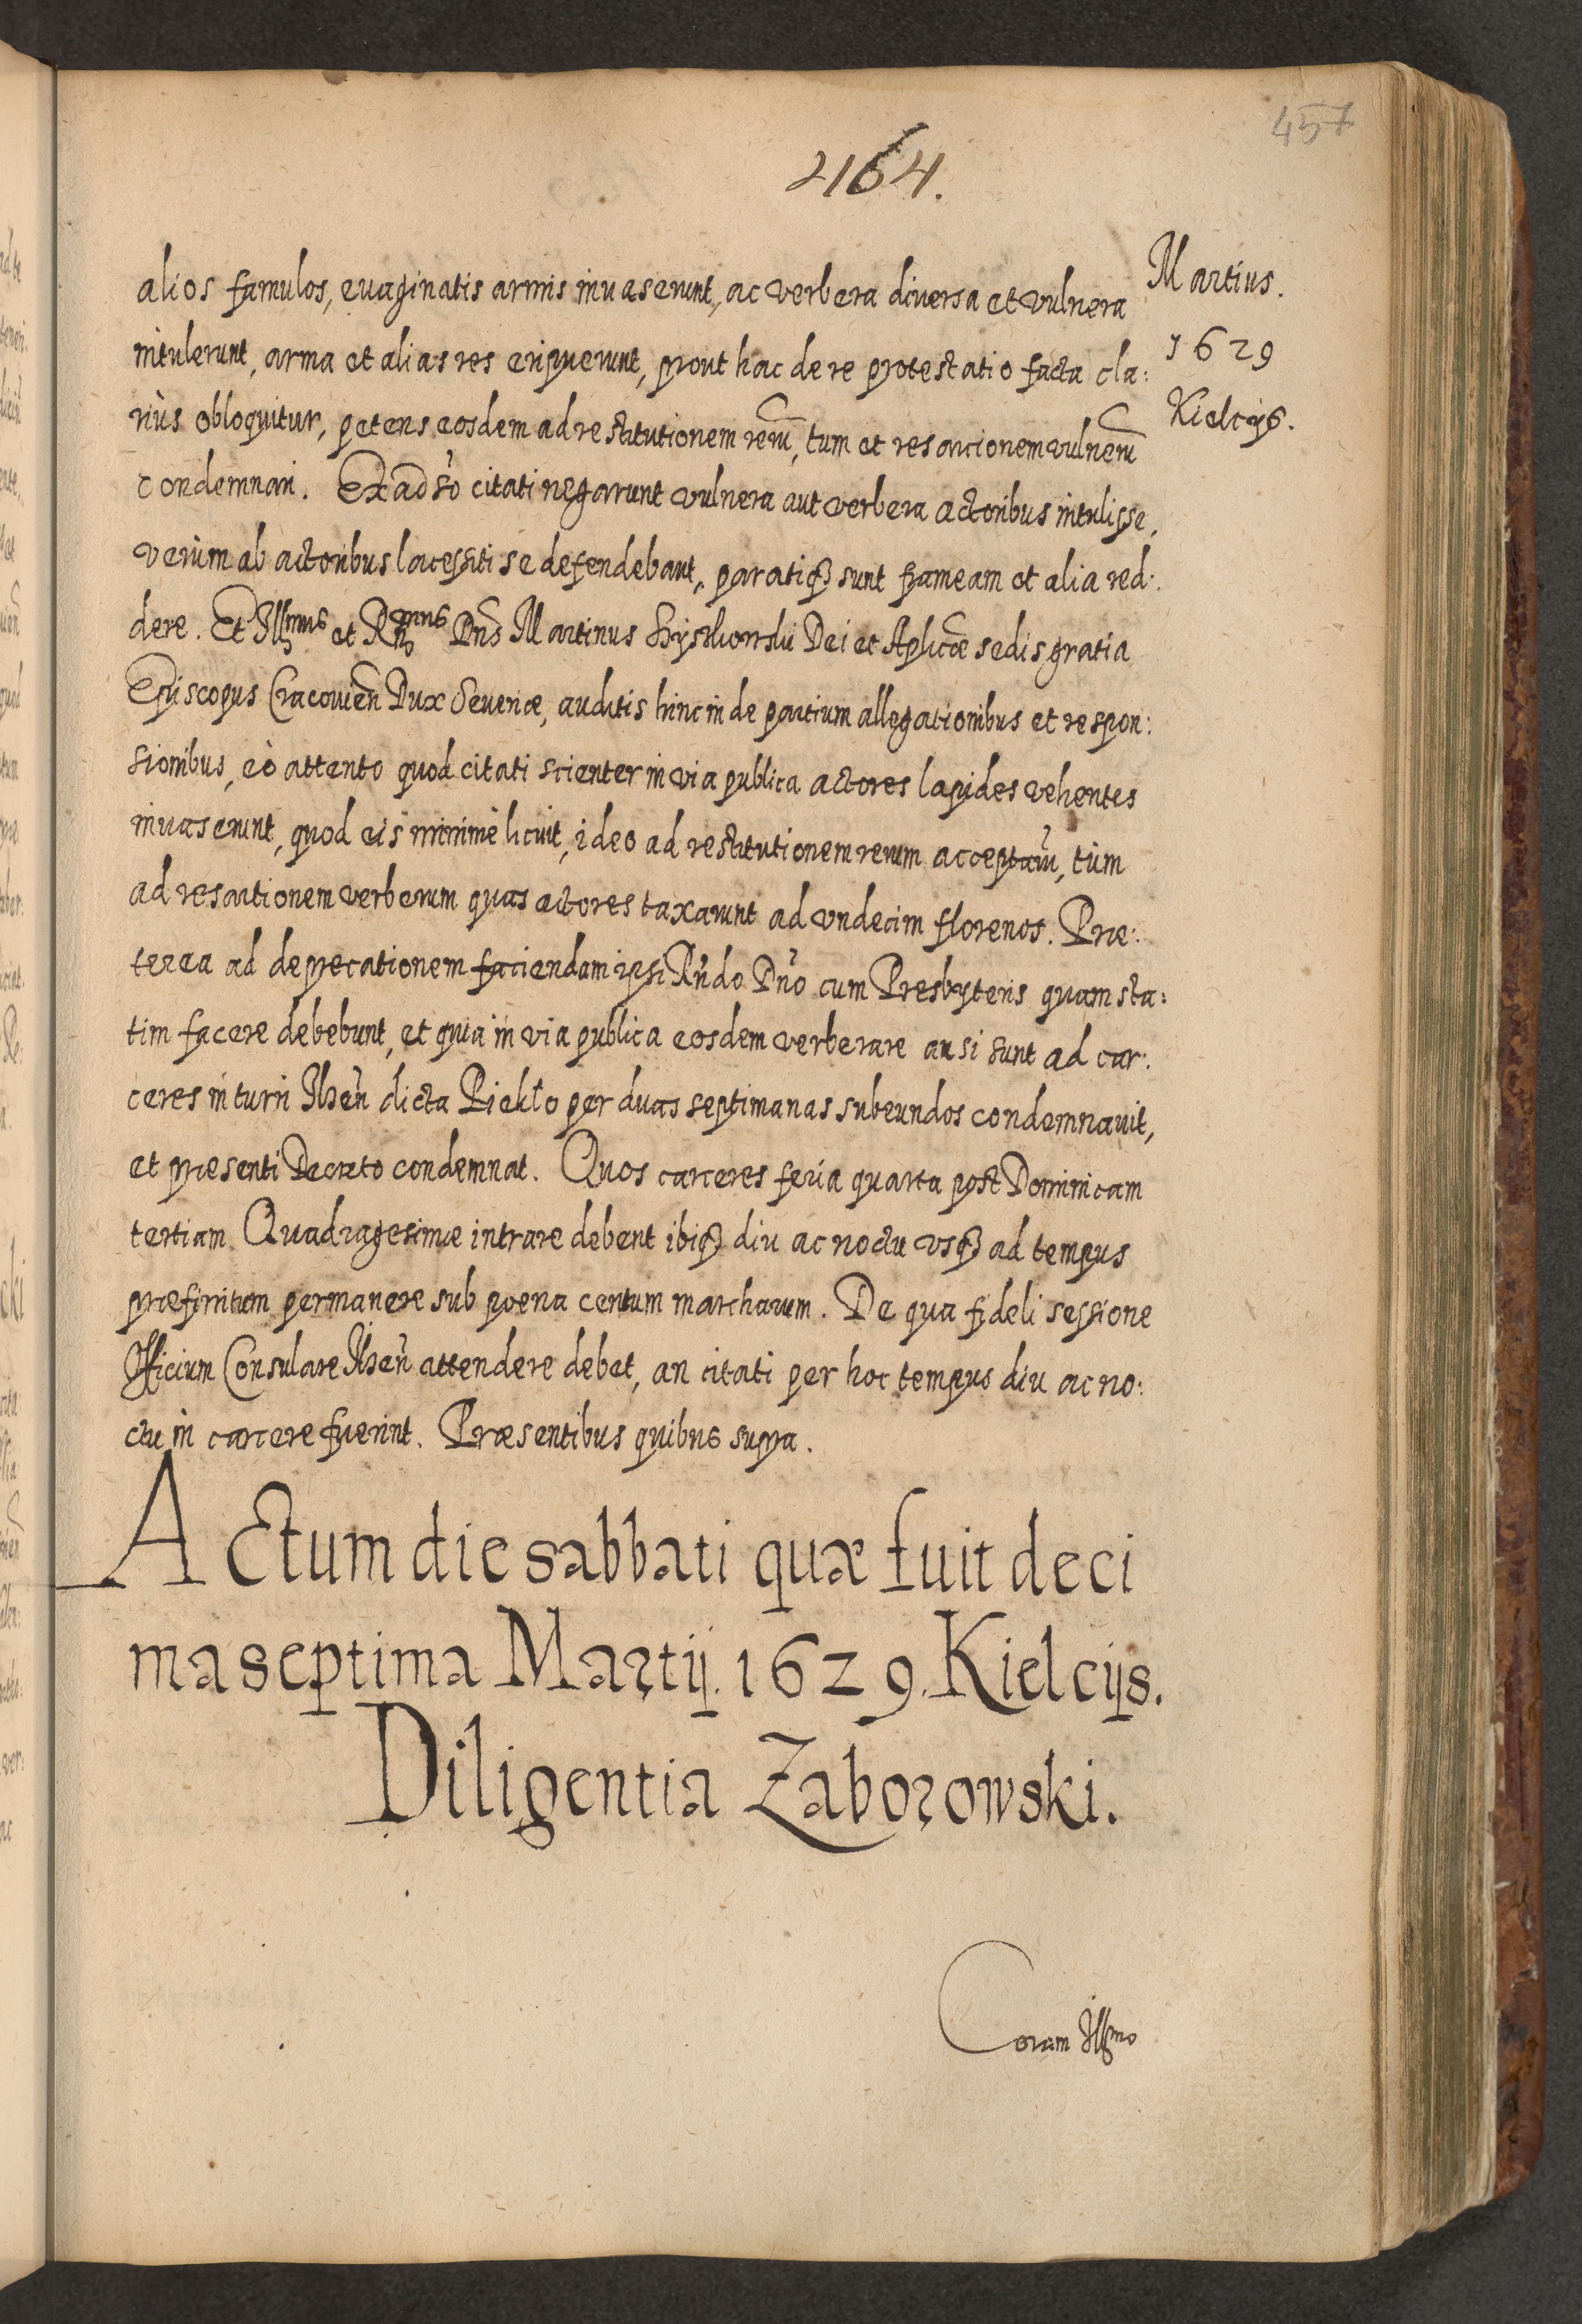 457
2164.
Martius.
1629
Kielcijs.
alios famulos, euaginatis armis inuaserunt, ac verbera diuersa et vulnera
intulerunt, arma et alias res eripuerunt, prout hac de re protestatio facta cla:
riùs obloquitur, petens eosdem ad restitutionem reru̅, tum et resarcionem vulneru̅
condemnari. Ex adso citati negarunt vulnera aut verbera actoribus intulisse,
verùm ab actoribus lacessiti se defendebant, paratiq3 sunt frameam et alia red:
dere. Et Illmus et Rn̅dmus Dn̅s Martinus Szyszkowski Dei et Aplicæ sedis gratia
Episcopus Cracouien̅ Dux Seueriæ, auditis hinc inde partium allegationibus et respon:
sionibus, eò attento quod citati scienter in via publica actores lapides vehentes
inuaserunt, quod eis minimè licuit, ideo ad restitutionem rerum acceptaru̅, tùm
ad resartionem verberum quas actores taxarunt ad vndecim florenos. Præ:
terea ad deprecationem faciendam ipsi Rn̅do Dn̅o cum Presbyteris quam sta:
tim facere debebunt, et quia in via publica eosdem verberare ausi sunt ad car:
ceres in turri Ilzen̅ dicta Piekło per duas septimanas subeundos condemnauit,
et præsenti Decreto condemnat. Quos carceres feria quarta post Dominicam
tertiam Quadragesimæ intrare debent ibiq3 diu ac noctu vsq3 ad tempus
præfinitum permanere sub poena centum marcharum. De qua fideli sessione
Officium Consulare Ilzen̅ attendere debet, an citati per hoc tempus diu ac no:
ctu in carcere fuerint. Præsentibus quibus supra.
Actum die sabbati quæ fuit deci
ma septima Martij. 1629. Kielcijs.
Diligentia Zaborowski.
Coram Illmo